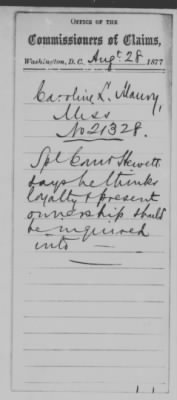 OFFICE OF THE
Commissioners of Claims,
Washington, D. C. Augt 28 1877
Caroline L.
Miss
No 21328.
Spl Com Hewett
says he thinks
loyalty & present
ownership should
be inquired
into —